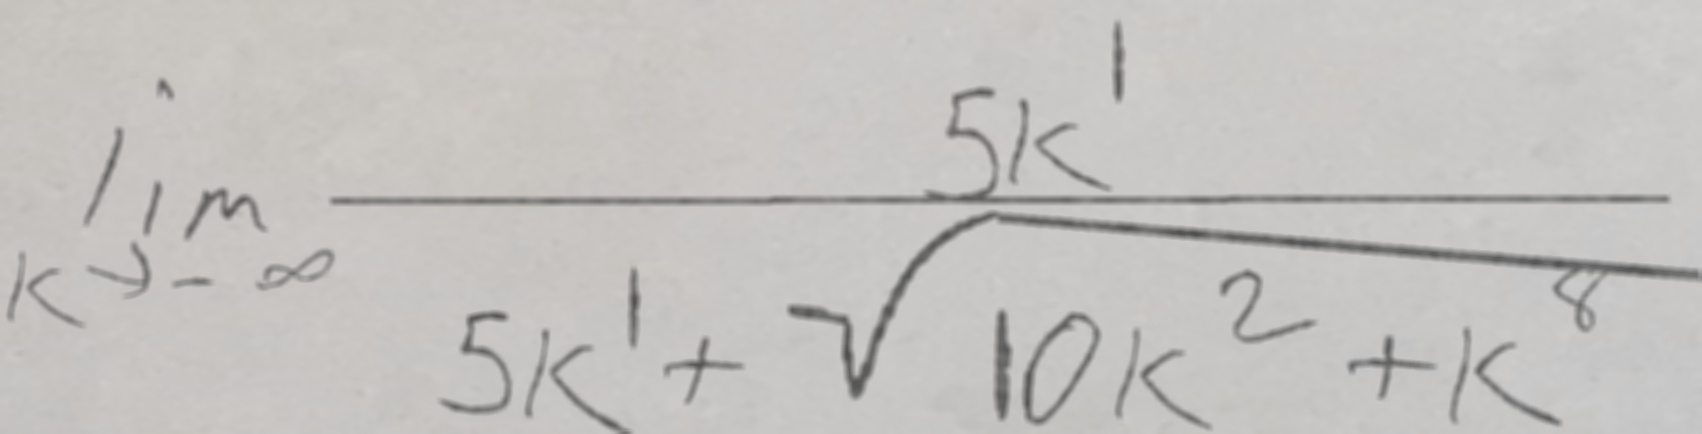 \lim_{k \to -\infty} \frac{5k^1}{5k^1 + \sqrt{10k^2 + k^8}}